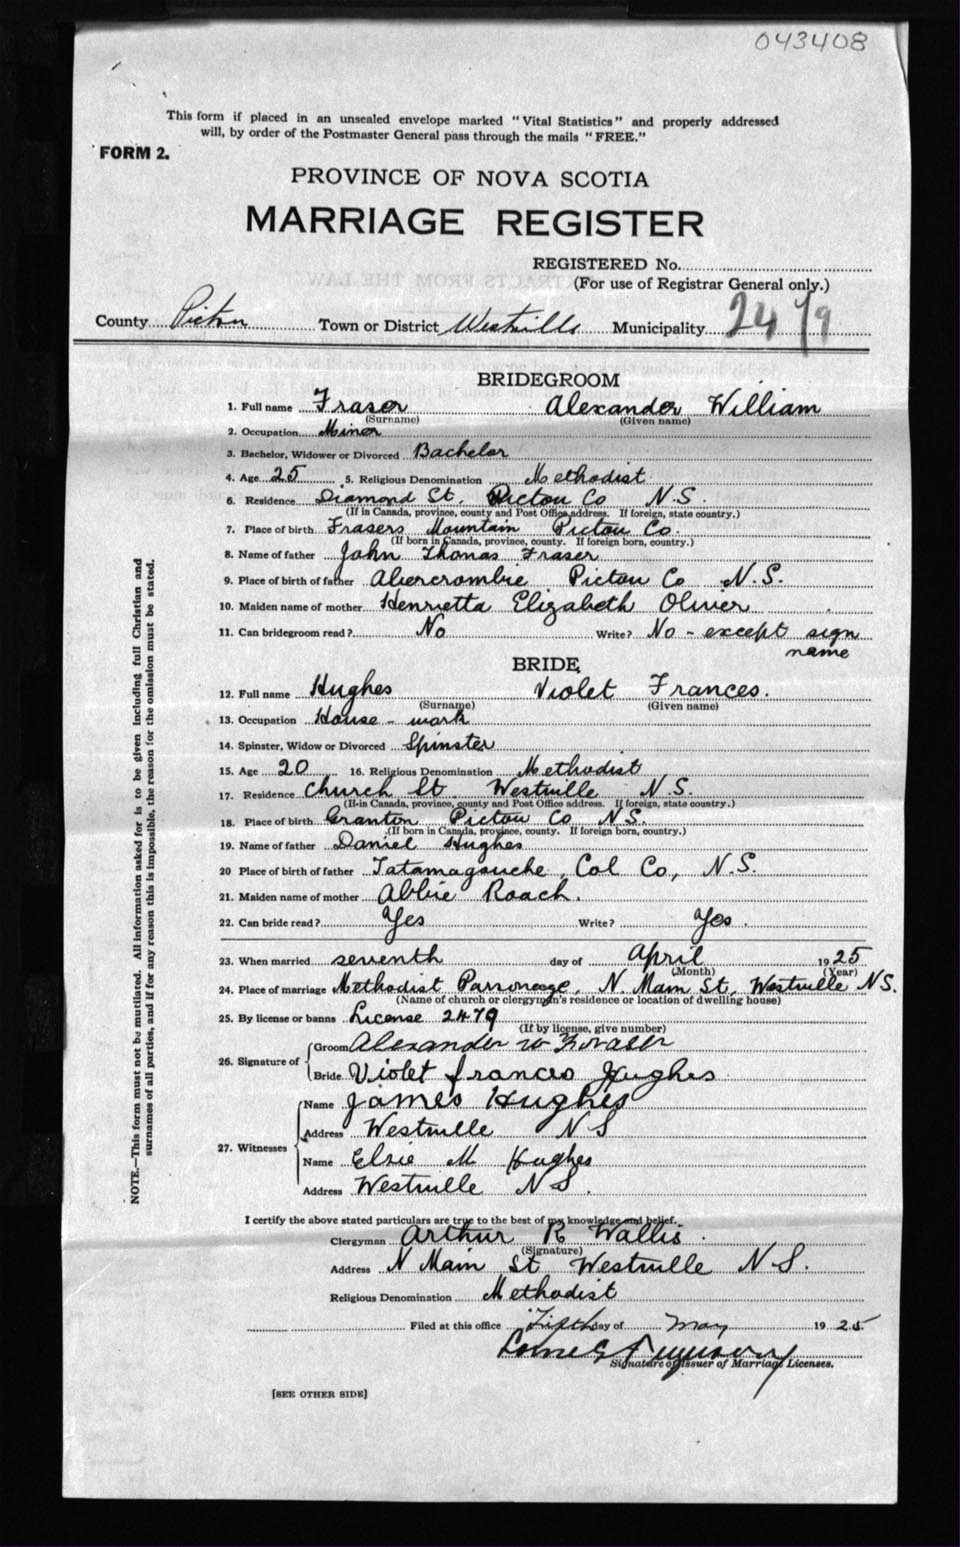 043408
This form if placed in an unsealed envelope marked "Vital Statistics" and properly addressed
will, by order of the Postmaster General pass through the mails "FREE."
FORM 2.
PROVINCE OF NOVA SCOTIA
MARRIAGE REGISTER
REGISTERED No.
(For use of Registrar General only.)
County Pictou Town or District Westville Municipality 2479
BRIDEGROOM
1. Full name Fraser Alexander William
(Surname) (Given name)
2. Occupation Miner
3. Bachelor, Widower or Divorced Bachelor
4. Age 25 5. Religious Denomination Methodist
6. Residence Diamond St. Pictou Co N.S.
(If in Canada, province, county and Post Office address. If foreign, state country.)
7. Place of birth Frasers Mountain Pictou Co.
(If born in Canada, province, county. If foreign born, country.)
8. Name of father John Thomas Fraser
9. Place of birth of father Abercrombie Pictou Co N.S.
10. Maiden name of mother Henrietta Elizabeth Oliver
11. Can bridegroom read? No Write? No - except sign
name
BRIDE
12. Full name Hughes Violet Frances.
(Surname) (Given name)
13. Occupation House - work
14. Spinster, Widow or Divorced Spinster
15. Age 20 16. Religious Denomination Methodist
17. Residence Church St Westville N.S.
(If in Canada, province, county and Post Office address. If foreign, state country.)
18. Place of birth Granton Pictou Co N.S.
(If born in Canada, province, county. If foreign born, country.)
19. Name of father Daniel Hughes
20 Place of birth of father Tatamagouche, Col Co, N.S.
21. Maiden name of mother Abbie Roach.
22. Can bride read? Yes Write? Yes.
23. When married seventh day of April 1925
(Month) (Year)
24. Place of marriage Methodist Parsonage, N. Main St, Westville NS.
(Name of church or clergyman's residence or location of dwelling house)
25. By license or banns License 2479
(If by license, give number)
26. Signature of Groom Alexander W Fraser
Bride Violet Frances Hughes
27. Witnesses Name James Hughes
Address Westville NS
Name Elsie M Hughes
Address Westville NS.
I certify the above stated particulars are true to the best of my knowledge and belief.
Clergyman Arthur R Wallis.
(Signature)
Address N Main St Westville N S.
Religious Denomination Methodist
Filed at this office Fifth day of May 1925
Signature of Issuer of Marriage Licenses.
[SEE OTHER SIDE]
NOTE.—This form must not be mutilated. All information asked for is to be given including full Christian and
surnames of all parties, and if for any reason this is impossible, the reason for the omission must be stated.